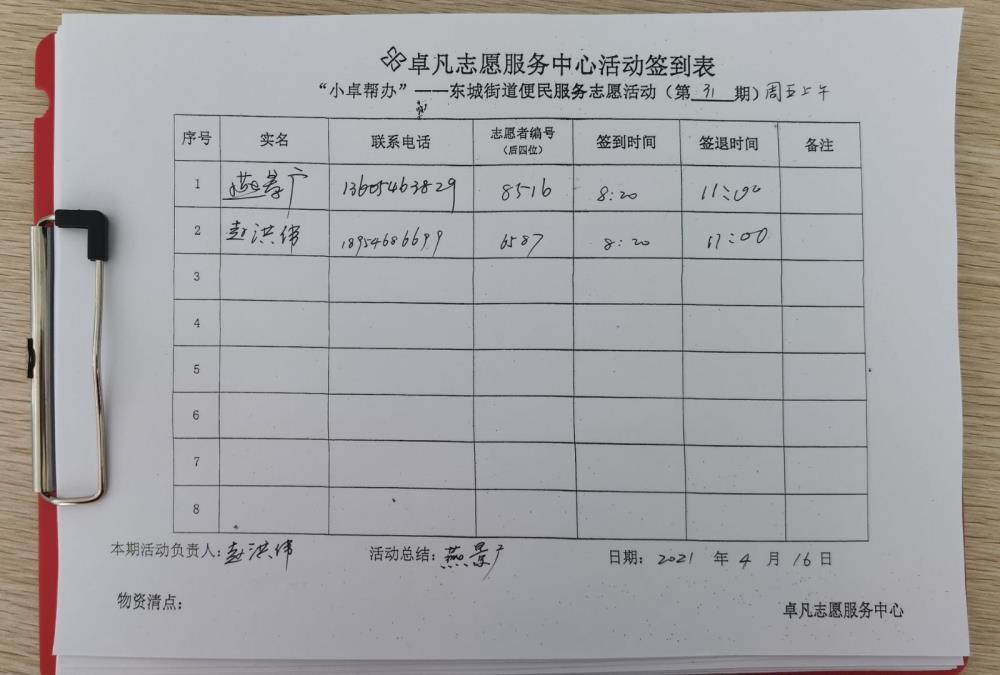 卓凡志愿服务中心活动签到表
“小卓帮办”——东城街道便民服务志愿活动（第31期）周五上午
序号 实名 联系电话 志愿者编号（后四位） 签到时间 签退时间 备注
1 燕景广 13605463829 8516 8:20 11:00
2 赵洪伟 18954686699 6587 8:20 11:00
3
4
5
6
7
8
本期活动负责人：赵洪伟 活动总结：燕景广 日期：2021年4月16日
物资清点： 卓凡志愿服务中心